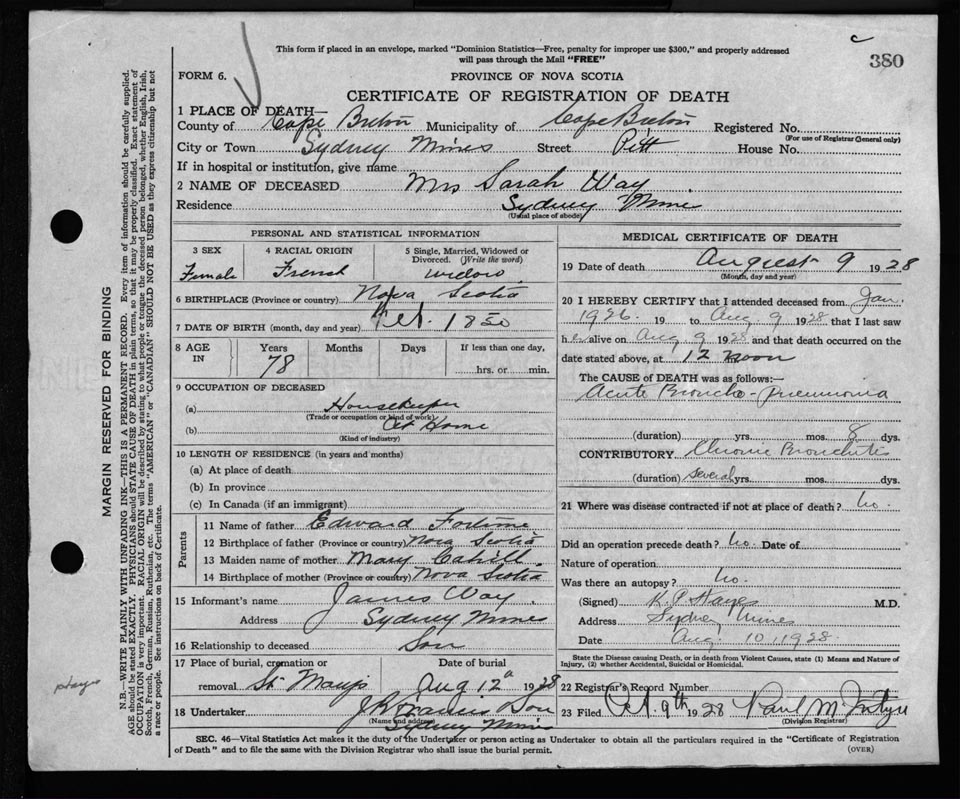 c
380
This form if placed in an envelope, marked "Dominion Statistics—Free, penalty for improper use $300," and properly addressed
will pass through the Mail "FREE"
FORM 6.
PROVINCE OF NOVA SCOTIA
CERTIFICATE OF REGISTRATION OF DEATH
1 PLACE OF DEATH—
County of Cape Breton Municipality of Cape Breton Registered No.
(For use of Registrar General only)
City or Town Sydney Mines Street Pitt House No.
If in hospital or institution, give name
2 NAME OF DECEASED Mrs Sarah Way
Residence Sydney Mines
(Usual place of abode)
PERSONAL AND STATISTICAL INFORMATION
3 SEX
Female
4 RACIAL ORIGIN
French
5 Single, Married, Widowed or
Divorced. (Write the word)
widow
6 BIRTHPLACE (Province or country) Nova Scotia
7 DATE OF BIRTH (month, day and year) 1850
8 AGE
IN
Years
78
Months
Days
If less than one day,
hrs. or min.
9 OCCUPATION OF DECEASED
(a) Housekeeper
(Trade or occupation or kind of work)
(b) At Home
(Kind of industry)
10 LENGTH OF RESIDENCE (in years and months)
(a) At place of death
(b) In province
(c) In Canada (if an immigrant)
Parents
11 Name of father Edward Fortune
12 Birthplace of father (Province or country) Nova Scotia
13 Maiden name of mother Mary Cahill
14 Birthplace of mother (Province or country) Nova Scotia
15 Informant's name James Way
Address Sydney Mines
16 Relationship to deceased Son
17 Place of burial, cremation or
removal St Marys
Date of burial
Aug 12th 1928
18 Undertaker Son
(Name and address)
Sydney Mines
MEDICAL CERTIFICATE OF DEATH
19 Date of death August 9 1928
(Month, day and year)
20 I HEREBY CERTIFY that I attended deceased from Jan.
1926. 19 to Aug. 9 1928 that I last saw
her alive on Aug 9 1928 and that death occurred on the
date stated above, at 12 noon
The CAUSE of DEATH was as follows:—
Acute Broncho-Pneumonia
(duration) yrs. mos. 8 dys.
CONTRIBUTORY Chronic Bronchitis
(duration) Several yrs. mos. dys.
21 Where was disease contracted if not at place of death? no.
Did an operation precede death? no. Date of
Nature of operation
Was there an autopsy? no.
(Signed) Hayes M.D.
Address Sydney Mines
Date Aug. 10, 1928.
State the Disease causing Death, or in death from Violent Causes, state (1) Means and Nature of
Injury, (2) whether Accidental, Suicidal or Homicidal.
22 Registrar's Record Number
23 Filed Oct. 9th 1928 Paul McIntyre
(Division Registrar)
SEC. 46—Vital Statistics Act makes it the duty of the Undertaker or person acting as Undertaker to obtain all the particulars required in the "Certificate of Registration
of Death" and to file the same with the Division Registrar who shall issue the burial permit.
(OVER)
MARGIN RESERVED FOR BINDING
N.B.—WRITE PLAINLY WITH UNFADING INK—THIS IS A PERMANENT RECORD. Every item of information should be carefully supplied.
AGE should be stated EXACTLY. PHYSICIANS should STATE CAUSE OF DEATH in plain terms, so that it may be properly classified. Exact statement of
OCCUPATION is very important. RACIAL ORIGIN will be described by stating to what people or tongue the deceased person belonged, whether English, Irish,
Scotch, French, German, Russian, Ruthenian, etc. The terms "AMERICAN" or "CANADIAN" SHOULD NOT BE USED as they express citizenship but not
a race or people. See instructions on back of Certificate.
Hayes